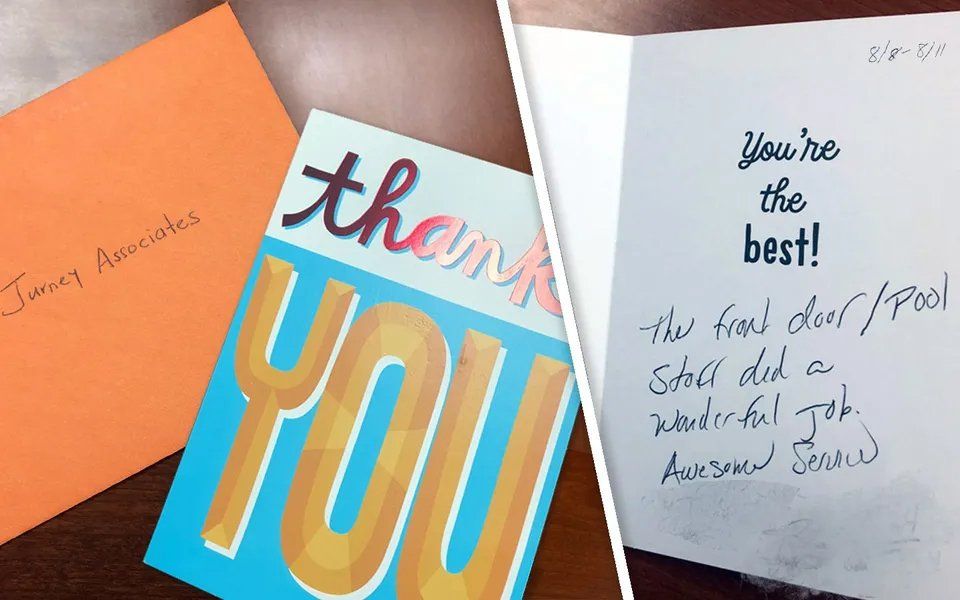 Jurney Associates
thank
YOU
8/8-8/11
You're
the
best!
The front door/Pool
Staff did a
wonderful Job.
Awesome Service